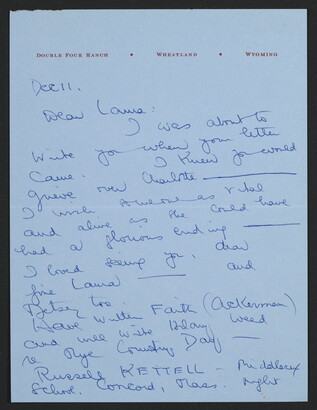 DOUBLE FOUR RANCH • WHEATLAND • WYOMING
Dec 11.
Dear Laura:
I was about to
write you when your letter
came. I knew you would
grieve over Charlotte —
I wish someone as vital
and alive as she could have
had a glorious ending —
I loved seeing you, dear
fine Laura — and
Betsey too
Have written Faith (Ackerman)
and will write Hilary Weed
re Rye Country Day —
Russell KETTELL — Middlesex
School, Concord, Mass. might